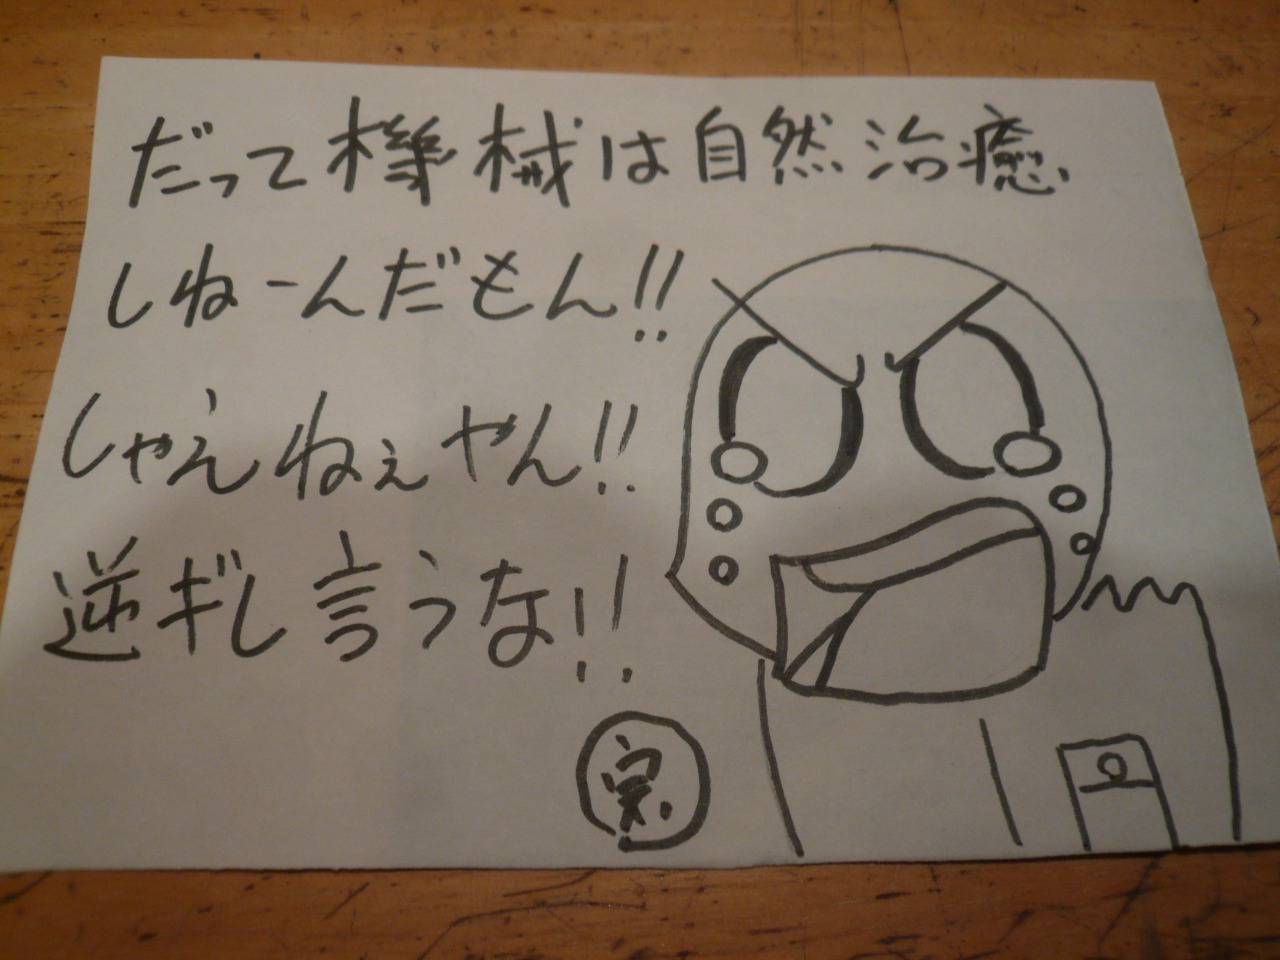 だって機械は自然治癒
しねーんだもん!!
しゃえねぇやん!!
逆ギレ言うな!!
宗